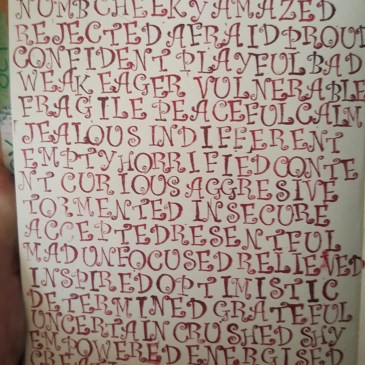 NUMB CHEEKY AMAZED
REJECTED AFRAID PROUD
CONFIDENT PLAYFUL BAD
WEAK EAGER VULNERABLE
FRAGILE PEACEFUL CALM
JEALOUS INDIFFERENT
EMPTY HORRIFIED CONTE
NT CURIOUS AGGRESIVE
TORMENTED INSECURE
ACCEPTED RESENTFUL
MAD UNFOCUSED RELIEVED
INSPIRED OPTIMISTIC
DETERMINED GRATEFUL
UNCERTAIN CRUSHED SHY
EMPOWERED ENERGISED